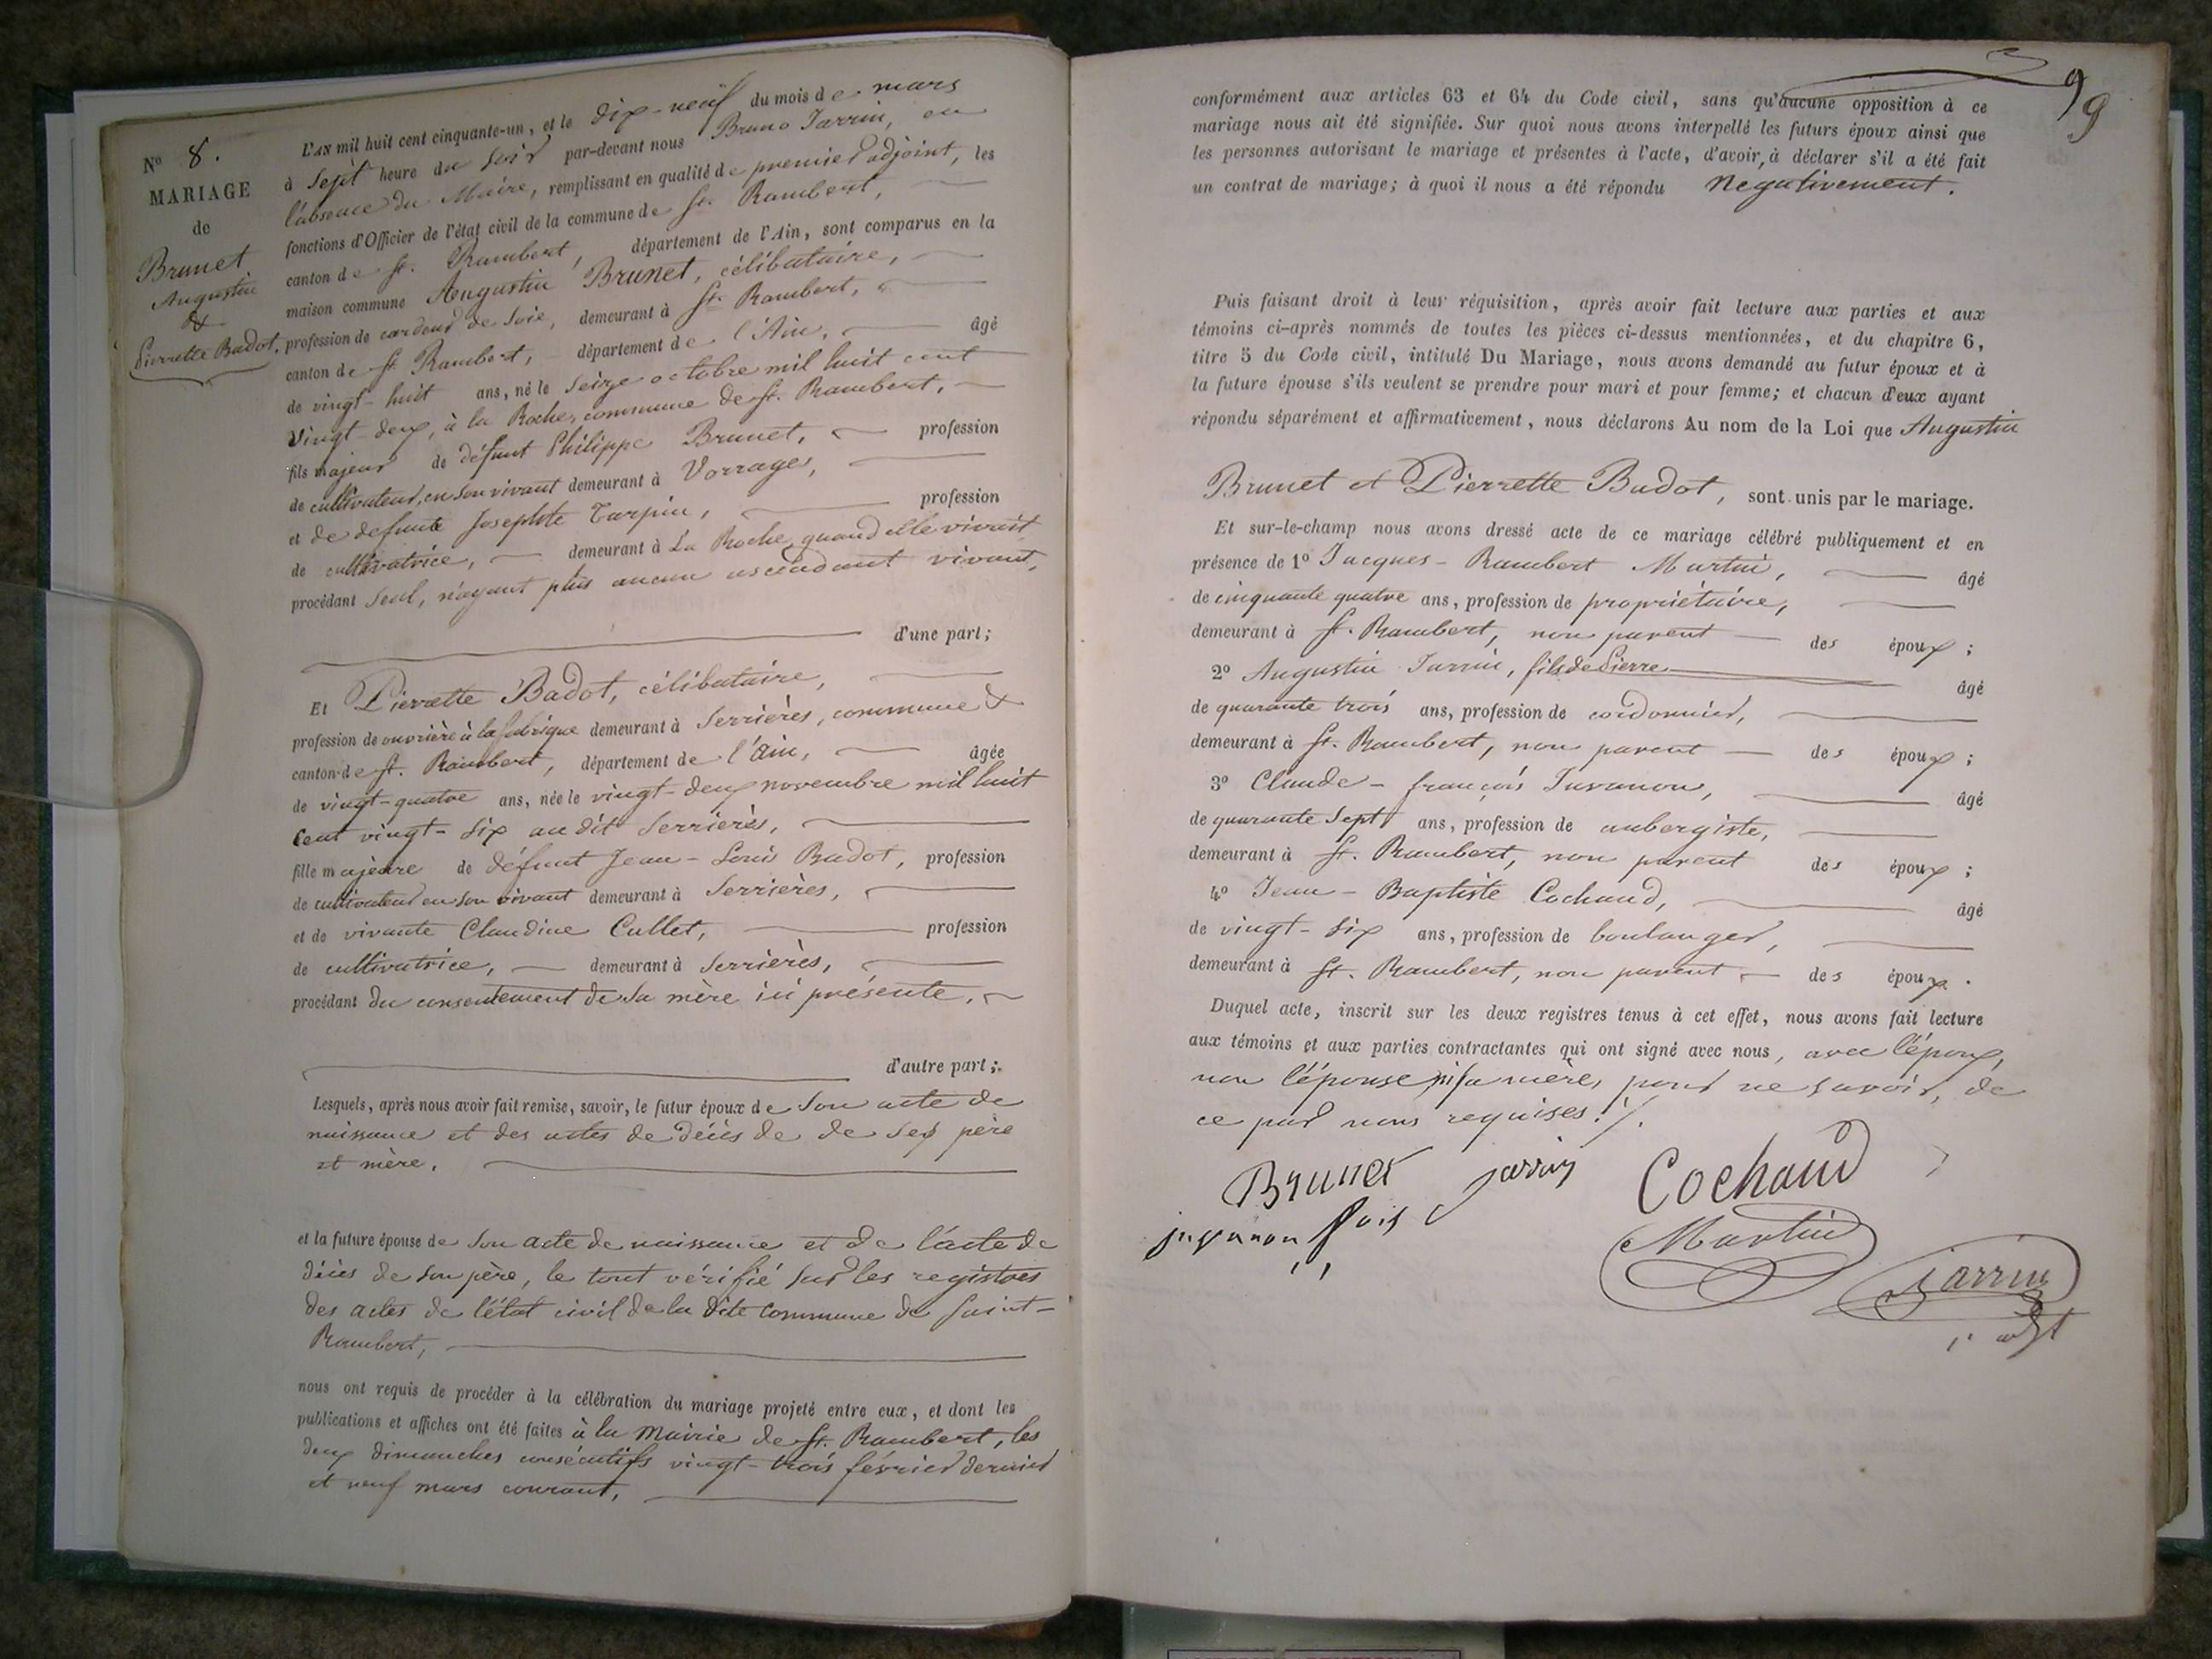 N° 8.
MARIAGE
de
Brunet
Augustin
&
Pierrette Badot,
L'AN mil huit cent cinquante-un, et le dix-neuf du mois de mars
à sept heure du soir par-devant nous Bruno Jarrin, en
l'absence du Maire, remplissant en qualité de premier adjoint, les
fonctions d'Officier de l'état civil de la commune de St. Rambert,
canton de St. Rambert, département de l'Ain, sont comparus en la
maison commune Augustin Brunet, célibataire,
profession de cardeur de soie, demeurant à St. Rambert,
canton de St. Rambert, département de l'Ain, âgé
de vingt-huit ans, né le seize octobre mil huit cent
vingt-deux, à la Roche, commune de St. Rambert,
fils majeur de défunt Philippe Brunet, profession
de cultivateur, en son vivant demeurant à Vorrages,
et de defunte Josephte Tarpin, profession
de cultivatrice, demeurant à La Roche quand elle vivait,
procédant seul, n'ayant plus aucun ascendant vivant,
d'une part;
Et Pierrette Badot, célibataire,
profession de ouvrière à la fabrique demeurant à Serrières, commune &
canton de St. Rambert, département de l'Ain, âgée
de vingt-quatre ans, née le vingt-deux novembre mil huit
cent vingt-six au dit Serrières,
fille majeure de défunt Jean-Louis Badot, profession
de cultivateur en son vivant demeurant à Serrières,
et de vivante Claudine Cullet, profession
de cultivatrice, demeurant à Serrières,
procédant du consentement de sa mère ici présente,
d'autre part;
Lesquels, après nous avoir fait remise, savoir, le futur époux de son acte de
naissance et des actes de décès de de ses père
et mère,
et la future épouse de son acte de naissance et de l'acte de
décès de son père, le tout vérifié sur les registres
des actes de l'état civil de la dite commune de Saint-
Rambert,
nous ont requis de procéder à la célébration du mariage projeté entre eux, et dont les
publications et affiches ont été faites à la Mairie de St. Rambert, les
deux dimanches consécutifs vingt-trois février dernier
et neuf mars courant,
99
conformément aux articles 63 et 64 du Code civil, sans qu'aucune opposition à ce
mariage nous ait été signifiée. Sur quoi nous avons interpellé les futurs époux ainsi que
les personnes autorisant le mariage et présentes à l'acte, d'avoir, à déclarer s'il a été fait
un contrat de mariage; à quoi il nous a été répondu Negativement.
Puis faisant droit à leur réquisition, après avoir fait lecture aux parties et aux
témoins ci-après nommés de toutes les pièces ci-dessus mentionnées, et du chapitre 6,
titre 5 du Code civil, intitulé Du Mariage, nous avons demandé au futur époux et à
la future épouse s'ils veulent se prendre pour mari et pour femme; et chacun d'eux ayant
répondu séparément et affirmativement, nous déclarons Au nom de la Loi que Augustin
Brunet et Pierrette Badot, sont unis par le mariage.
Et sur-le-champ nous avons dressé acte de ce mariage célébré publiquement et en
présence de 1° Jacques-Rambert Martin, âgé
de cinquante quatre ans, profession de propriétaire,
demeurant à St. Rambert, non parent des époux;
2° Augustin Jarrin, fils de Pierre âgé
de quarante trois ans, profession de cordonnier,
demeurant à St. Rambert, non parent des époux;
3° Claude-françois Juvanon, âgé
de quarante sept ans, profession de aubergiste,
demeurant à St. Rambert, non parent des époux;
4° Jean-Baptiste Cochaud, âgé
de vingt-six ans, profession de boulanger,
demeurant à St. Rambert, non parent des époux.
Duquel acte, inscrit sur les deux registres tenus à cet effet, nous avons fait lecture
aux témoins et aux parties contractantes qui ont signé avec nous, avec l'époux,
non l'épouse, ni sa mère, pour ne savoir, de
ce par nous requises./.
Brunet jarrin Cochaud
juvanon fois
Martin
Jarrin
1er adjt